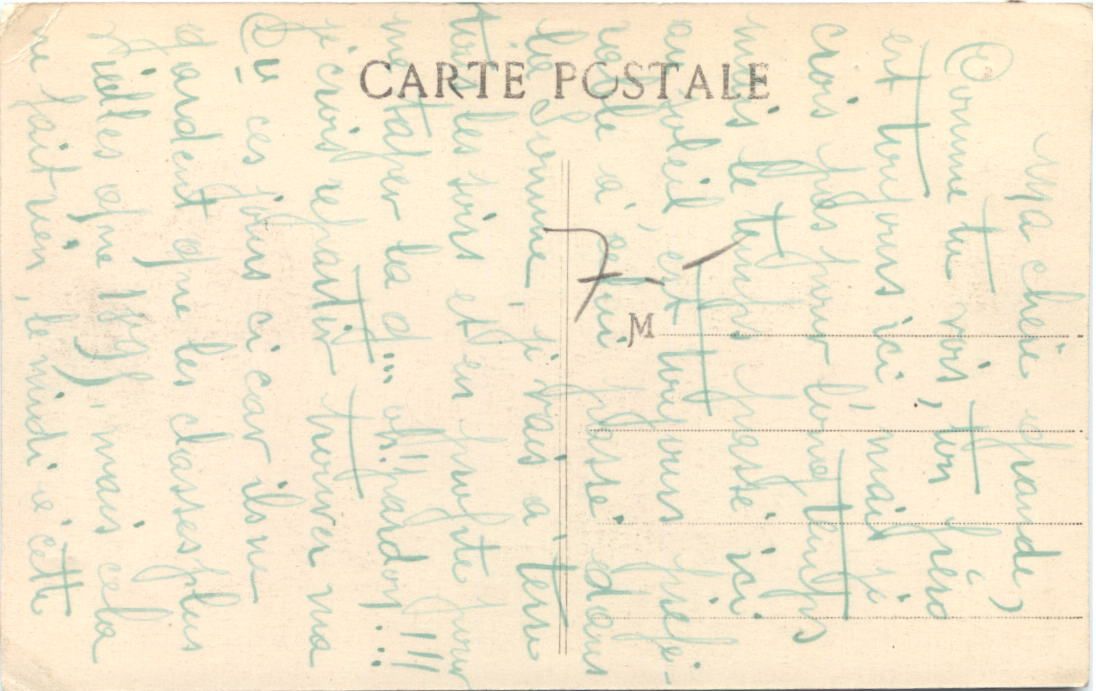 CARTE POSTALE
M
7 -
Ma chère grande,
Comme tu vois, ton frero
est toujours ici, mais je
crois pas pour longtemps
mais le temps passé ici
au soleil est toujours préfé-
rable à celui passé dans
la, je vais à terre
tous les soirs et en profite pour
me taper la d... oh! pardon!!!
je crois repartir trouver ma
ces jours ci car ils ne
gardent que les classes plus
vieilles que, mais cela
ne fait rien, le midi